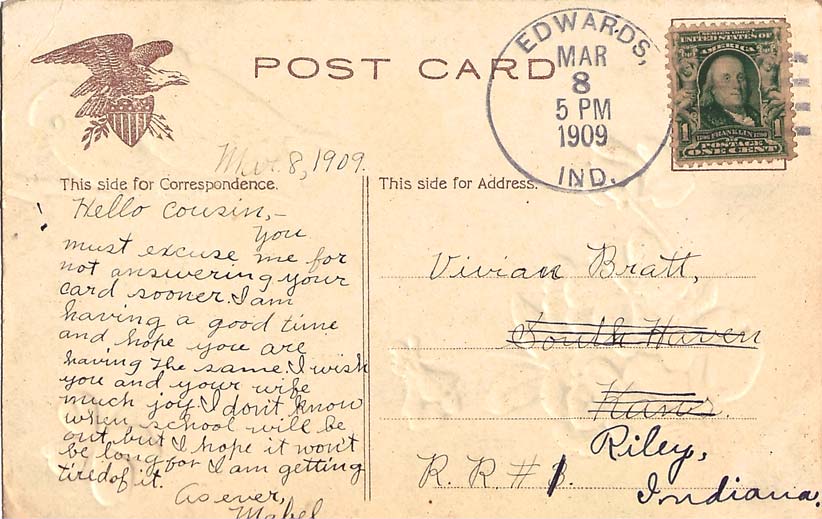 POST CARD
EDWARDS,
MAR
8
5 PM
1909
IND.
SERIES 1902
UNITED STATES OF
AMERICA
1 FRANKLIN 1
POSTAGE
ONE CENT
Mar. 8, 1909.
This side for Correspondence.
Hello Cousin,-
You
must excuse me for
not answering your
card sooner. I am
having a good time
and hope you are
having the same. I wish
you and your wife
much joy. I don't know
when school will be
out, but I hope it won't
be long for I am getting
tired of it.
As ever,
Mabel
This side for Address.
Vivian Bratt,
South Haven
Kans.
Riley,
R. R #1.
Indiana.